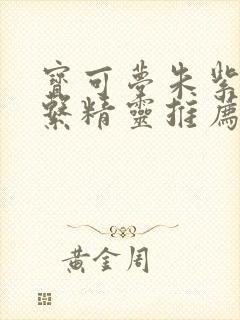 寶可夢朱紫
繫精靈推薦
黃金周